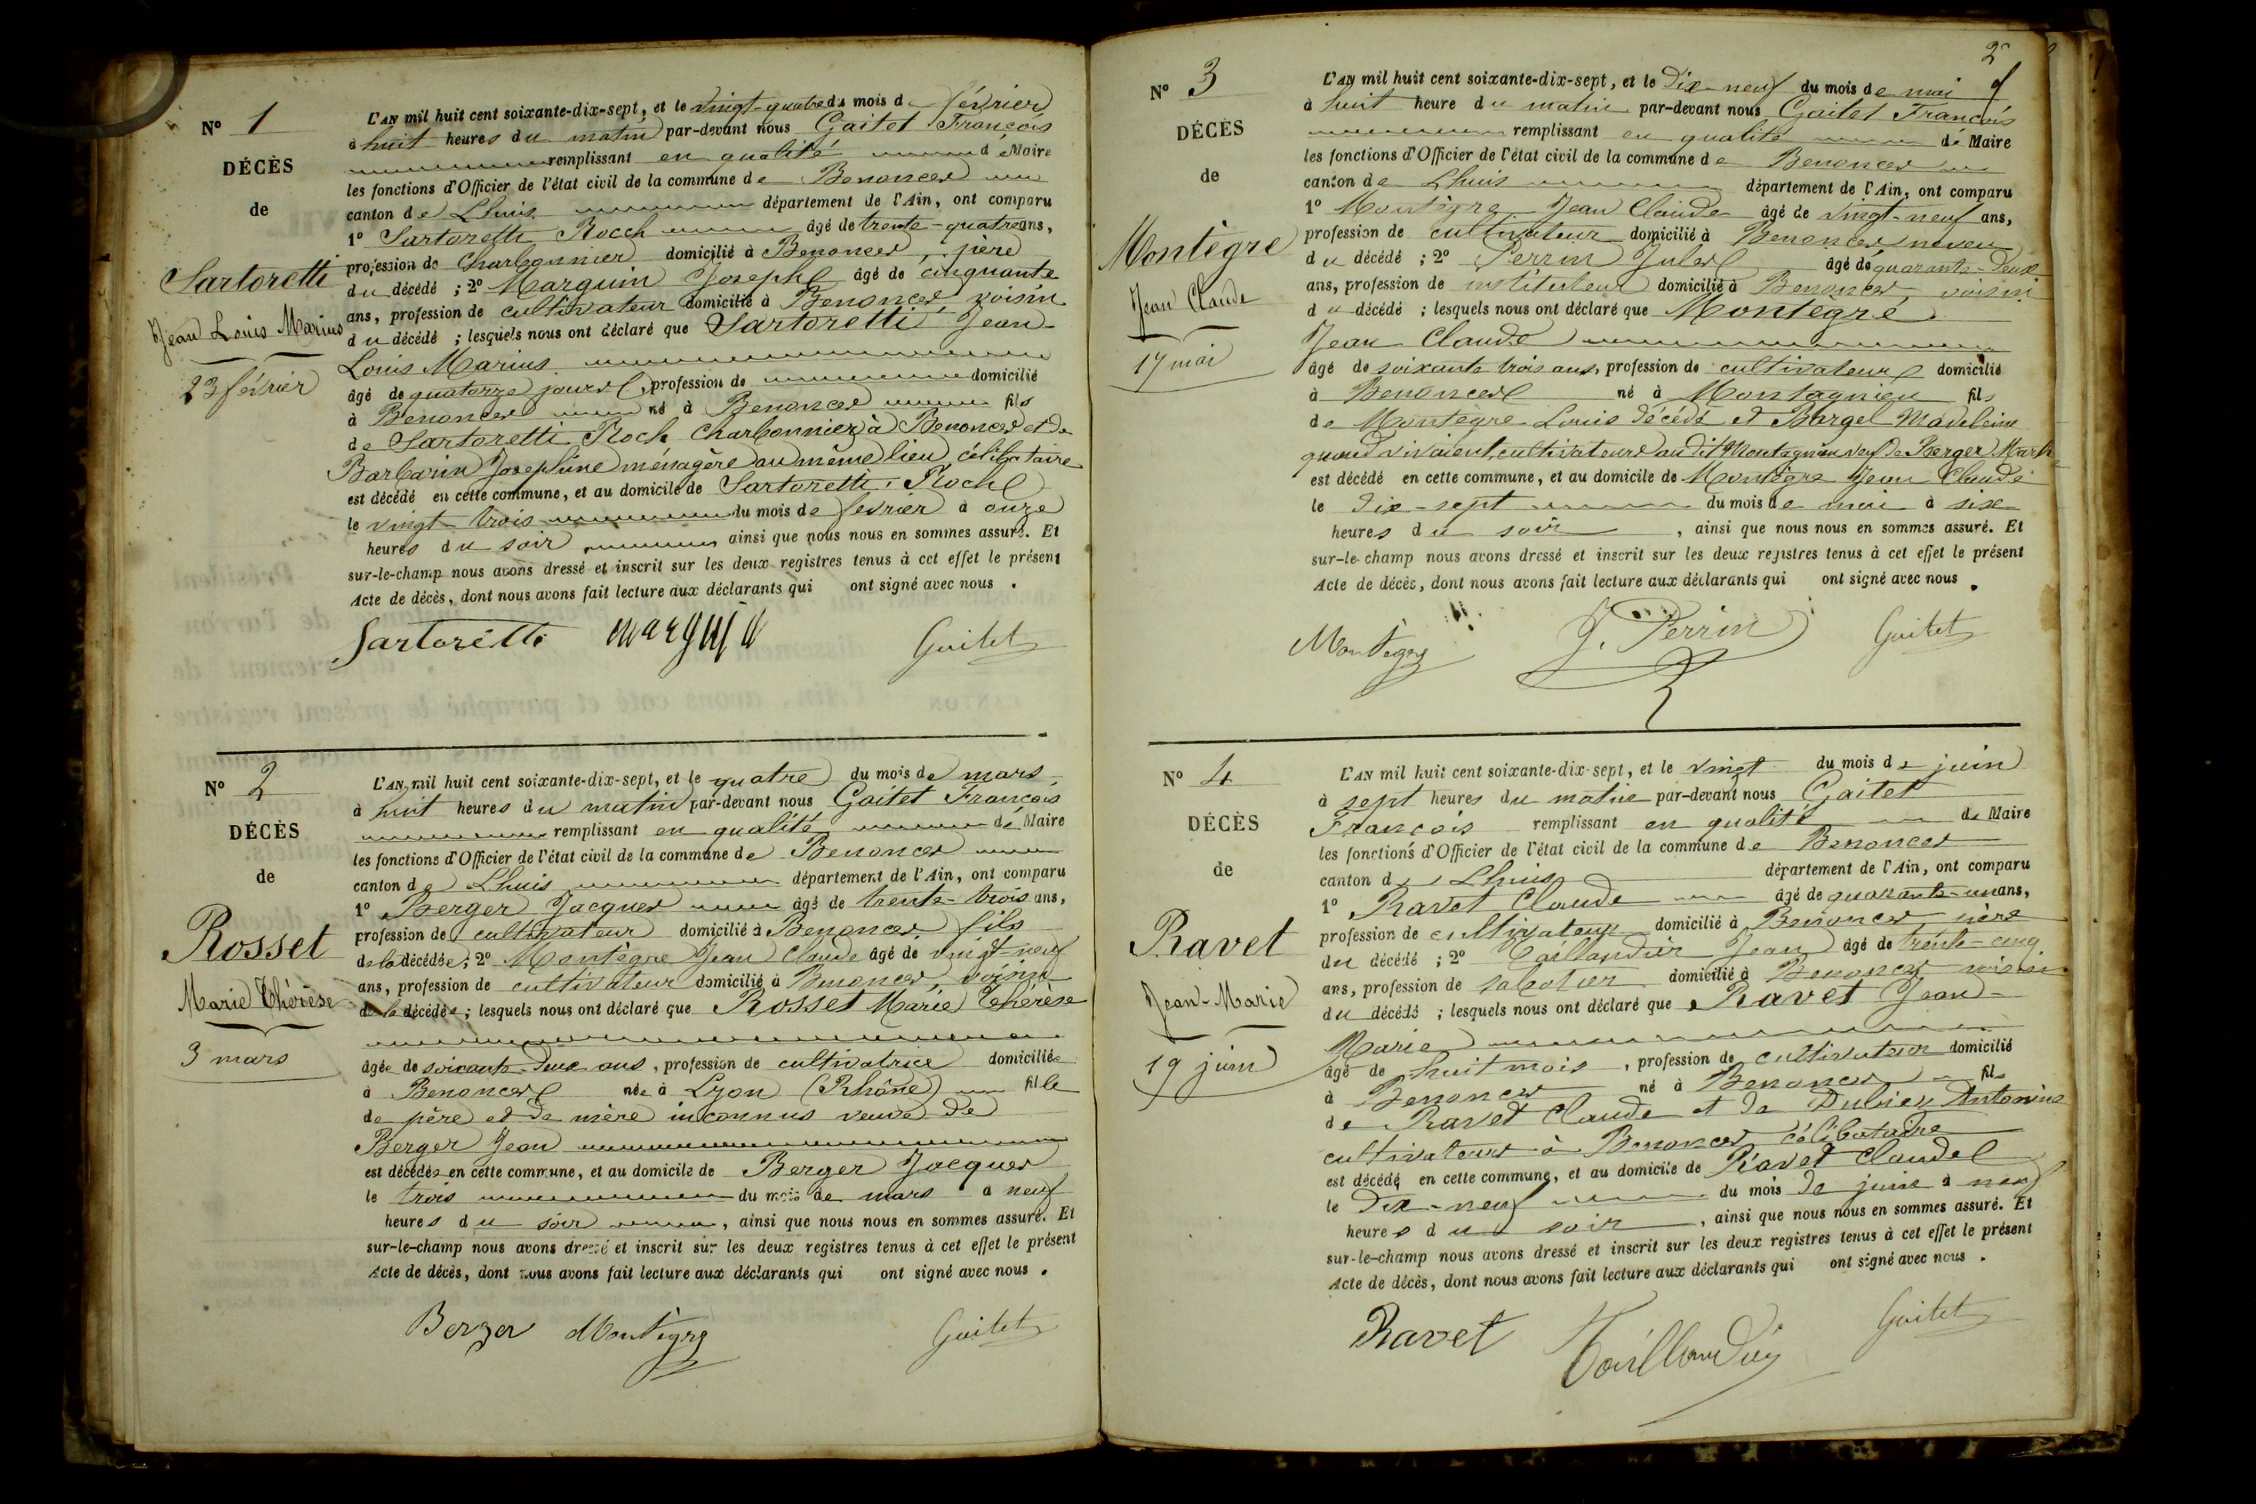 Nº 1
DÉCÈS
de
Sartoretti
Jean Louis Marius
23 février
L'AN mil huit cent soixante-dix-sept, et le vingt-quatre du mois de février
à huit heures du matin par-devant nous Gaitet François
remplissant en qualité de Maire
les fonctions d'Officier de l'état civil de la commune de Benonces
canton de Lhuis département de l'Ain, ont comparu
1º Sartoretti Roch âgé de trente-quatre ans,
profession de Charbonnier domicilié à Benonces, père
du décédé ; 2º Marguin Joseph âgé de cinquante
ans, profession de cultivateur domicilié à Benonces voisin
du décédé ; lesquels nous ont déclaré que Sartoretti Jean-
Louis Marius
âgé de quatorze jours, profession de domicilié
à Benonces né à Benonces fils
de Sartoretti Roch Charbonnier à Benonces et de
Barbarin Josephine ménagère au même lieu, célibataire
est décédé en cette commune, et au domicile de Sartoretti Roch
le vingt trois du mois de février à onze
heures du soir ainsi que nous nous en sommes assuré. Et
sur-le-champ nous avons dressé et inscrit sur les deux registres tenus à cet effet le présent
Acte de décès, dont nous avons fait lecture aux déclarants qui ont signé avec nous.
Sartoretti Marguin Gaitet
Nº 2
DÉCÈS
de
Rosset
Marie Thérèse
3 mars
L'AN mil huit cent soixante-dix-sept, et le quatre du mois de mars
à huit heures du matin par-devant nous Gaitet François
remplissant en qualité de Maire
les fonctions d'Officier de l'état civil de la commune de Benonces
canton de Lhuis département de l'Ain, ont comparu
1º Berger Jacques âgé de trente-trois ans,
profession de cultivateur domicilié à Benonces fils
de la décédée ; 2º Montègre Jean Claude âgé de vingt-neuf
ans, profession de cultivateur domicilié à Benonces, voisin
de la décédée ; lesquels nous ont déclaré que Rosset Marie Thérèse
âgée de soixante-deux ans, profession de cultivatrice domiciliée
à Benonces née à Lyon (Rhône) fille
de père et de mère inconnus veuve de
Berger Jean
est décédée en cette commune, et au domicile de Berger Jacques
le trois du mois de mars à neuf
heures du soir, ainsi que nous nous en sommes assuré. Et
sur-le-champ nous avons dressé et inscrit sur les deux registres tenus à cet effet le présent
Acte de décès, dont nous avons fait lecture aux déclarants qui ont signé avec nous.
Berger Montègre Gaitet
2
Nº 3
DÉCÈS
de
Montègre
Jean Claude
17 mai
L'AN mil huit cent soixante-dix-sept, et le Dix-neuf du mois de mai
à huit heure du matin par-devant nous Gaitet François
remplissant en qualité de Maire
les fonctions d'Officier de l'état civil de la commune de Benonces
canton de Lhuis département de l'Ain, ont comparu
1º Montègre Jean Claude âgé de vingt-neuf ans,
profession de cultivateur domicilié à Benonces neveu
du décédé ; 2º Perrin Jules âgé de quarante-deux
ans, profession de instituteur domicilié à Benonces, voisin
du décédé ; lesquels nous ont déclaré que Montègre
Jean Claude
âgé de soixante trois ans, profession de cultivateur domicilié
à Benonces né à Montagnieu fils
de Montègre Louis décédé et Borgel Madeleine
quand vivaient cultivateurs audit Montagnieu veuf de Berger Marie
est décédé en cette commune, et au domicile de Montègre Jean Claude
le Dix-sept du mois de mai à six
heures du soir, ainsi que nous nous en sommes assuré. Et
sur-le-champ nous avons dressé et inscrit sur les deux registres tenus à cet effet le présent
Acte de décès, dont nous avons fait lecture aux déclarants qui ont signé avec nous.
Montègre J. Perrin Gaitet
Nº 4
DÉCÈS
de
Ravet
Jean-Marie
19 juin
L'AN mil huit cent soixante-dix-sept, et le vingt du mois de juin
à sept heures du matin par-devant nous Gaitet
François remplissant en qualité de Maire
les fonctions d'Officier de l'état civil de la commune de Benonces
canton de Lhuis département de l'Ain, ont comparu
1º Ravet Claude âgé de quarante-un ans,
profession de cultivateur domicilié à Benonces père
du décédé ; 2º Taillandier Jean âgé de trente-cinq
ans, profession de sabotier domicilié à Benonces voisin
du décédé ; lesquels nous ont déclaré que Ravet Jean-
Marie
âgé de huit mois, profession de cultivateur domicilié
à Benonces né à Benonces fils
de Ravet Claude et de Antonine
cultivateurs à Benonces célibataire
est décédé en cette commune, et au domicile de Ravet Claude
le Dix-neuf du mois de juin à neuf
heures du soir, ainsi que nous nous en sommes assuré. Et
sur-le-champ nous avons dressé et inscrit sur les deux registres tenus à cet effet le présent
Acte de décès, dont nous avons fait lecture aux déclarants qui ont signé avec nous.
Ravet Taillandier Gaitet